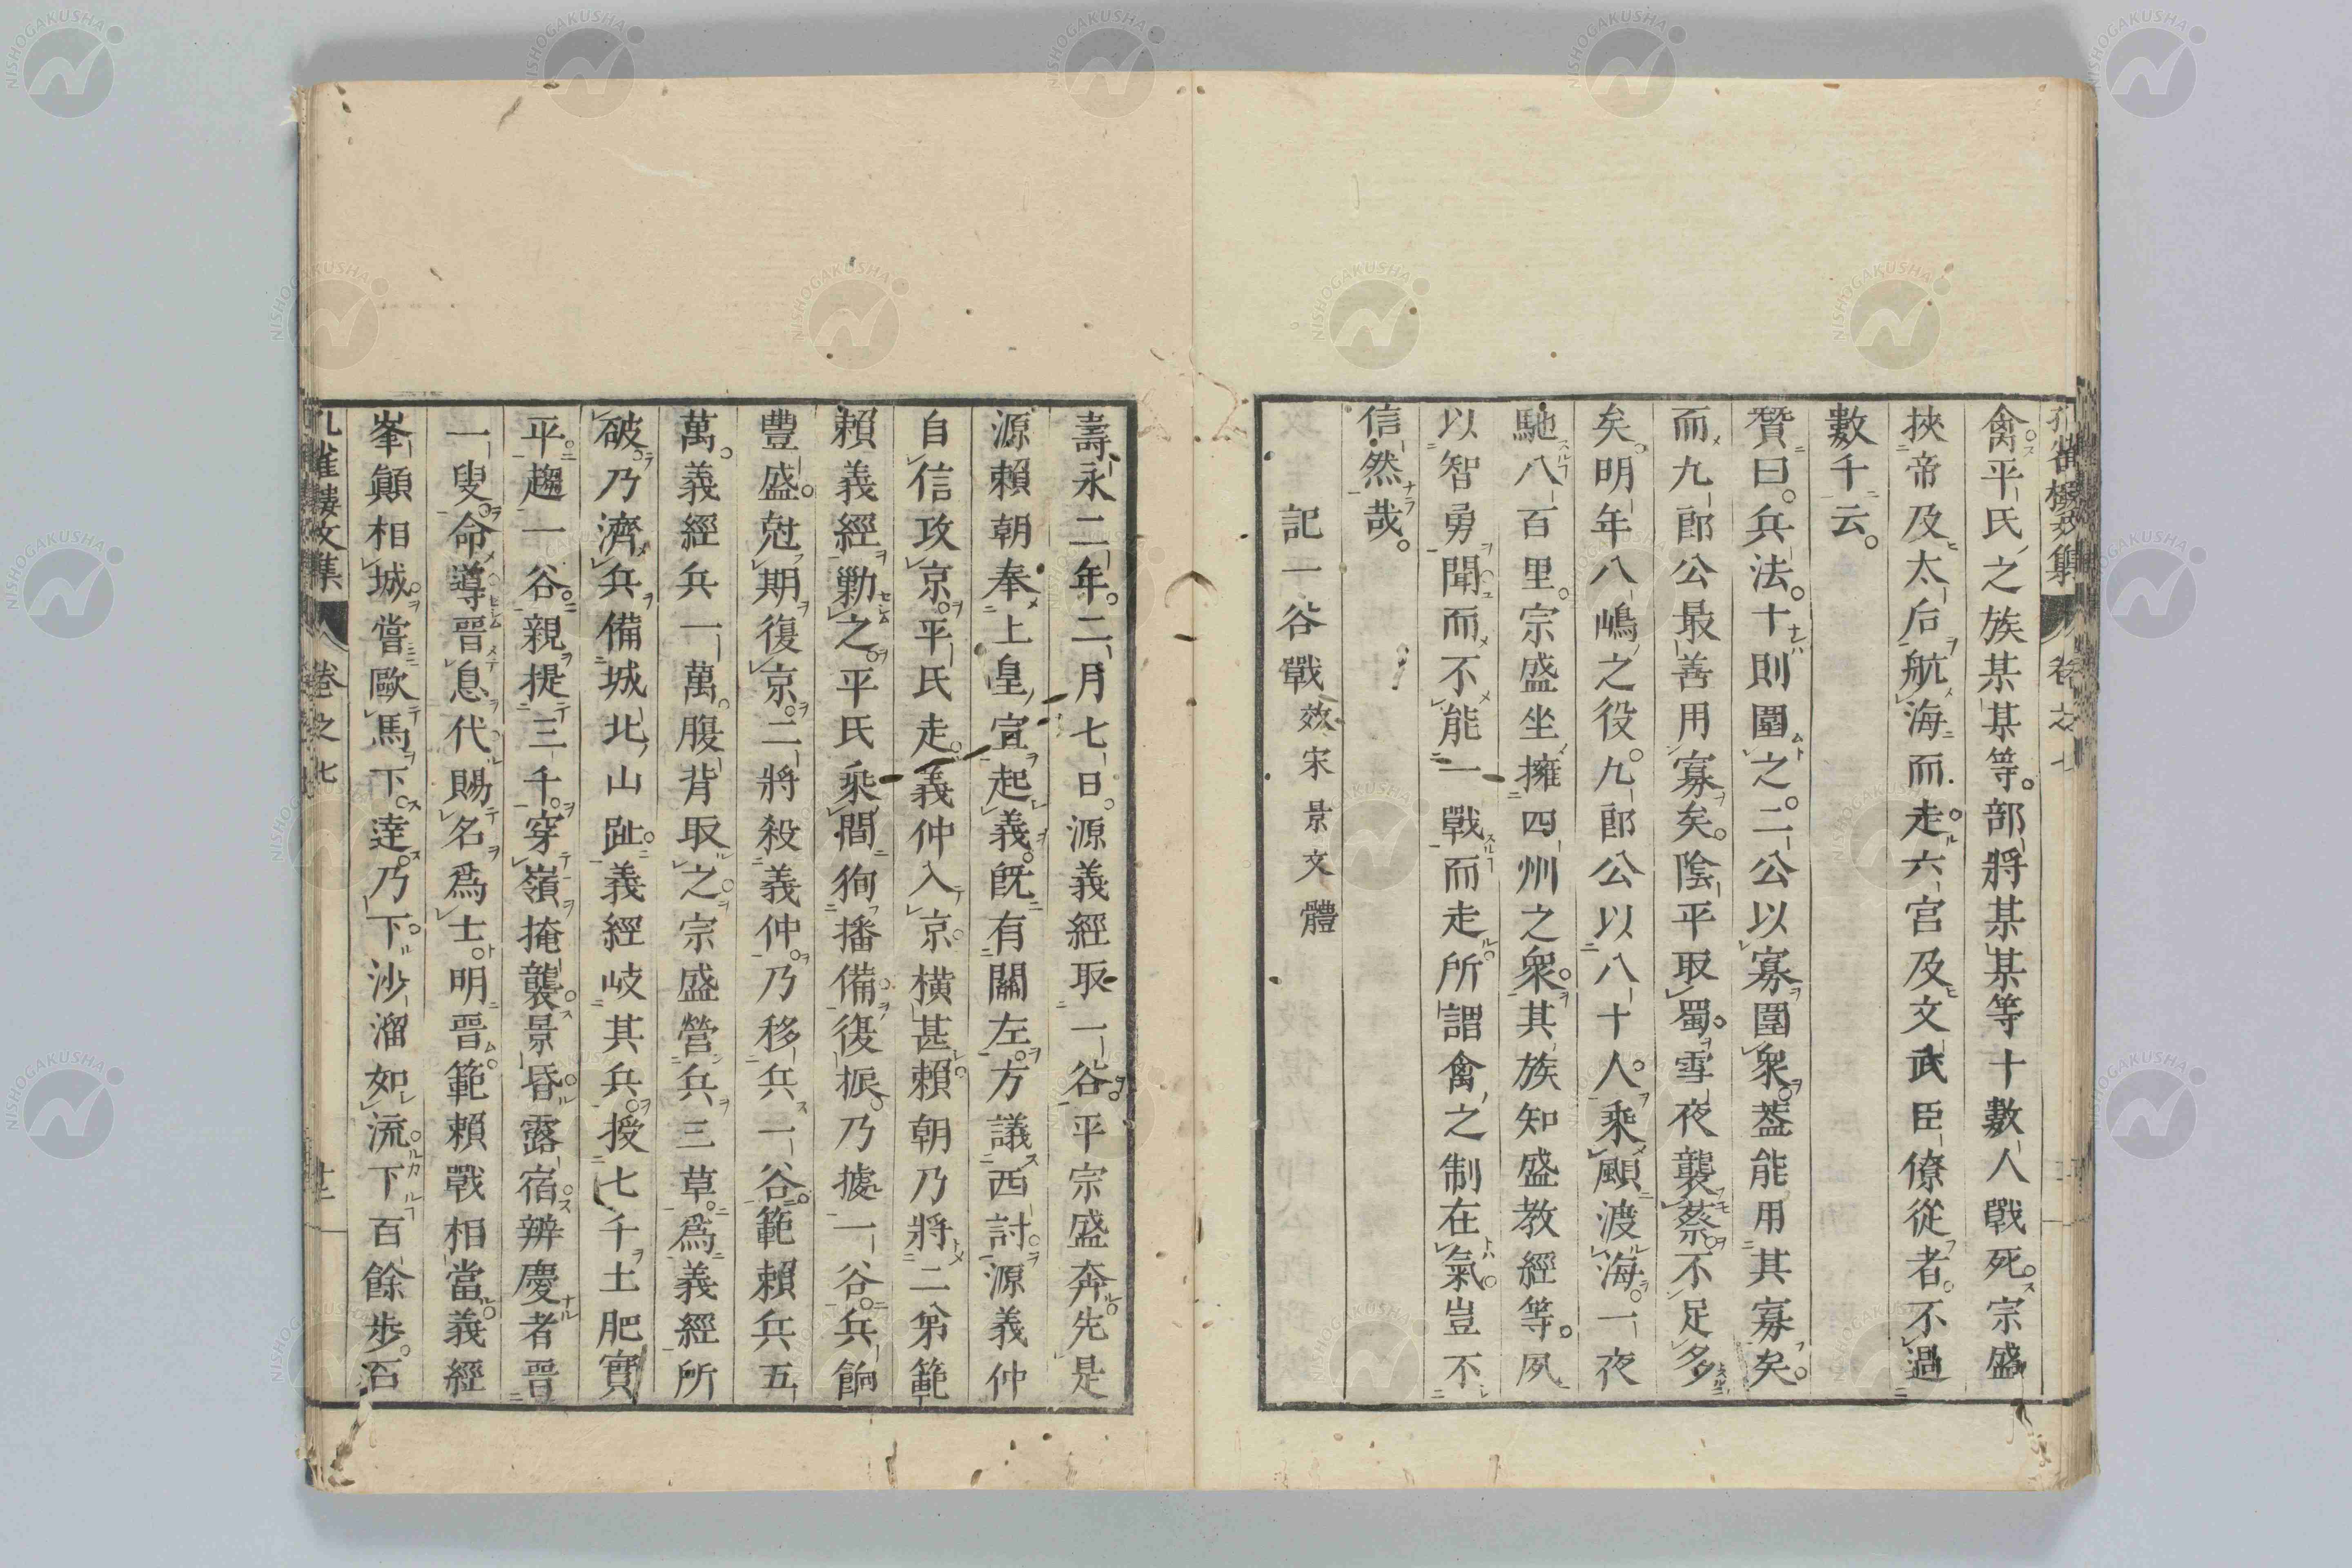 孔雀樓文集 卷之七
禽平氏之族某某等部將某某等十數人戰死宗盛
挾帝及太后航海而走六宮及文武臣僚從者不過
數千云
贊曰兵法十則圍之二公以寡圍衆葢能用其寡矣
而九郎公最善用寡矣陰平取蜀雪夜襲蔡不足多
矣明年八嶋之役九郎公以八十人乘颶渡海一夜
馳八百里宗盛坐擁四州之衆其族知盛教經等夙
以智勇聞而不能一戰而走所謂禽之制在氣豈不
信然哉
記一谷戰效宋景文體
壽永二年二月七日源義經取一谷平宗盛奔先是
源賴朝奉上皇宣起義旣有關左方議西討源義仲
自信攻京平氏走義仲入京橫甚賴朝乃將二弟範
賴義經勦之平氏乘間徇播備復振乃據一谷兵餉
豐盛尅期復京二將殺義仲乃移兵一谷範賴兵五
萬義經兵一萬腹背取之宗盛營兵三草爲義經所
破乃濟兵備城北山趾義經岐其兵授七千土肥實
平趨一谷親提三千穿嶺掩襲景昏露宿辨慶者晋
一叟命導晋息代賜名爲士明晋範賴戰相當義經
峯顚相城嘗歐馬下達乃下沙溜如流下百餘步石
孔雀樓文集 卷之七
NISHOGAKUSHA